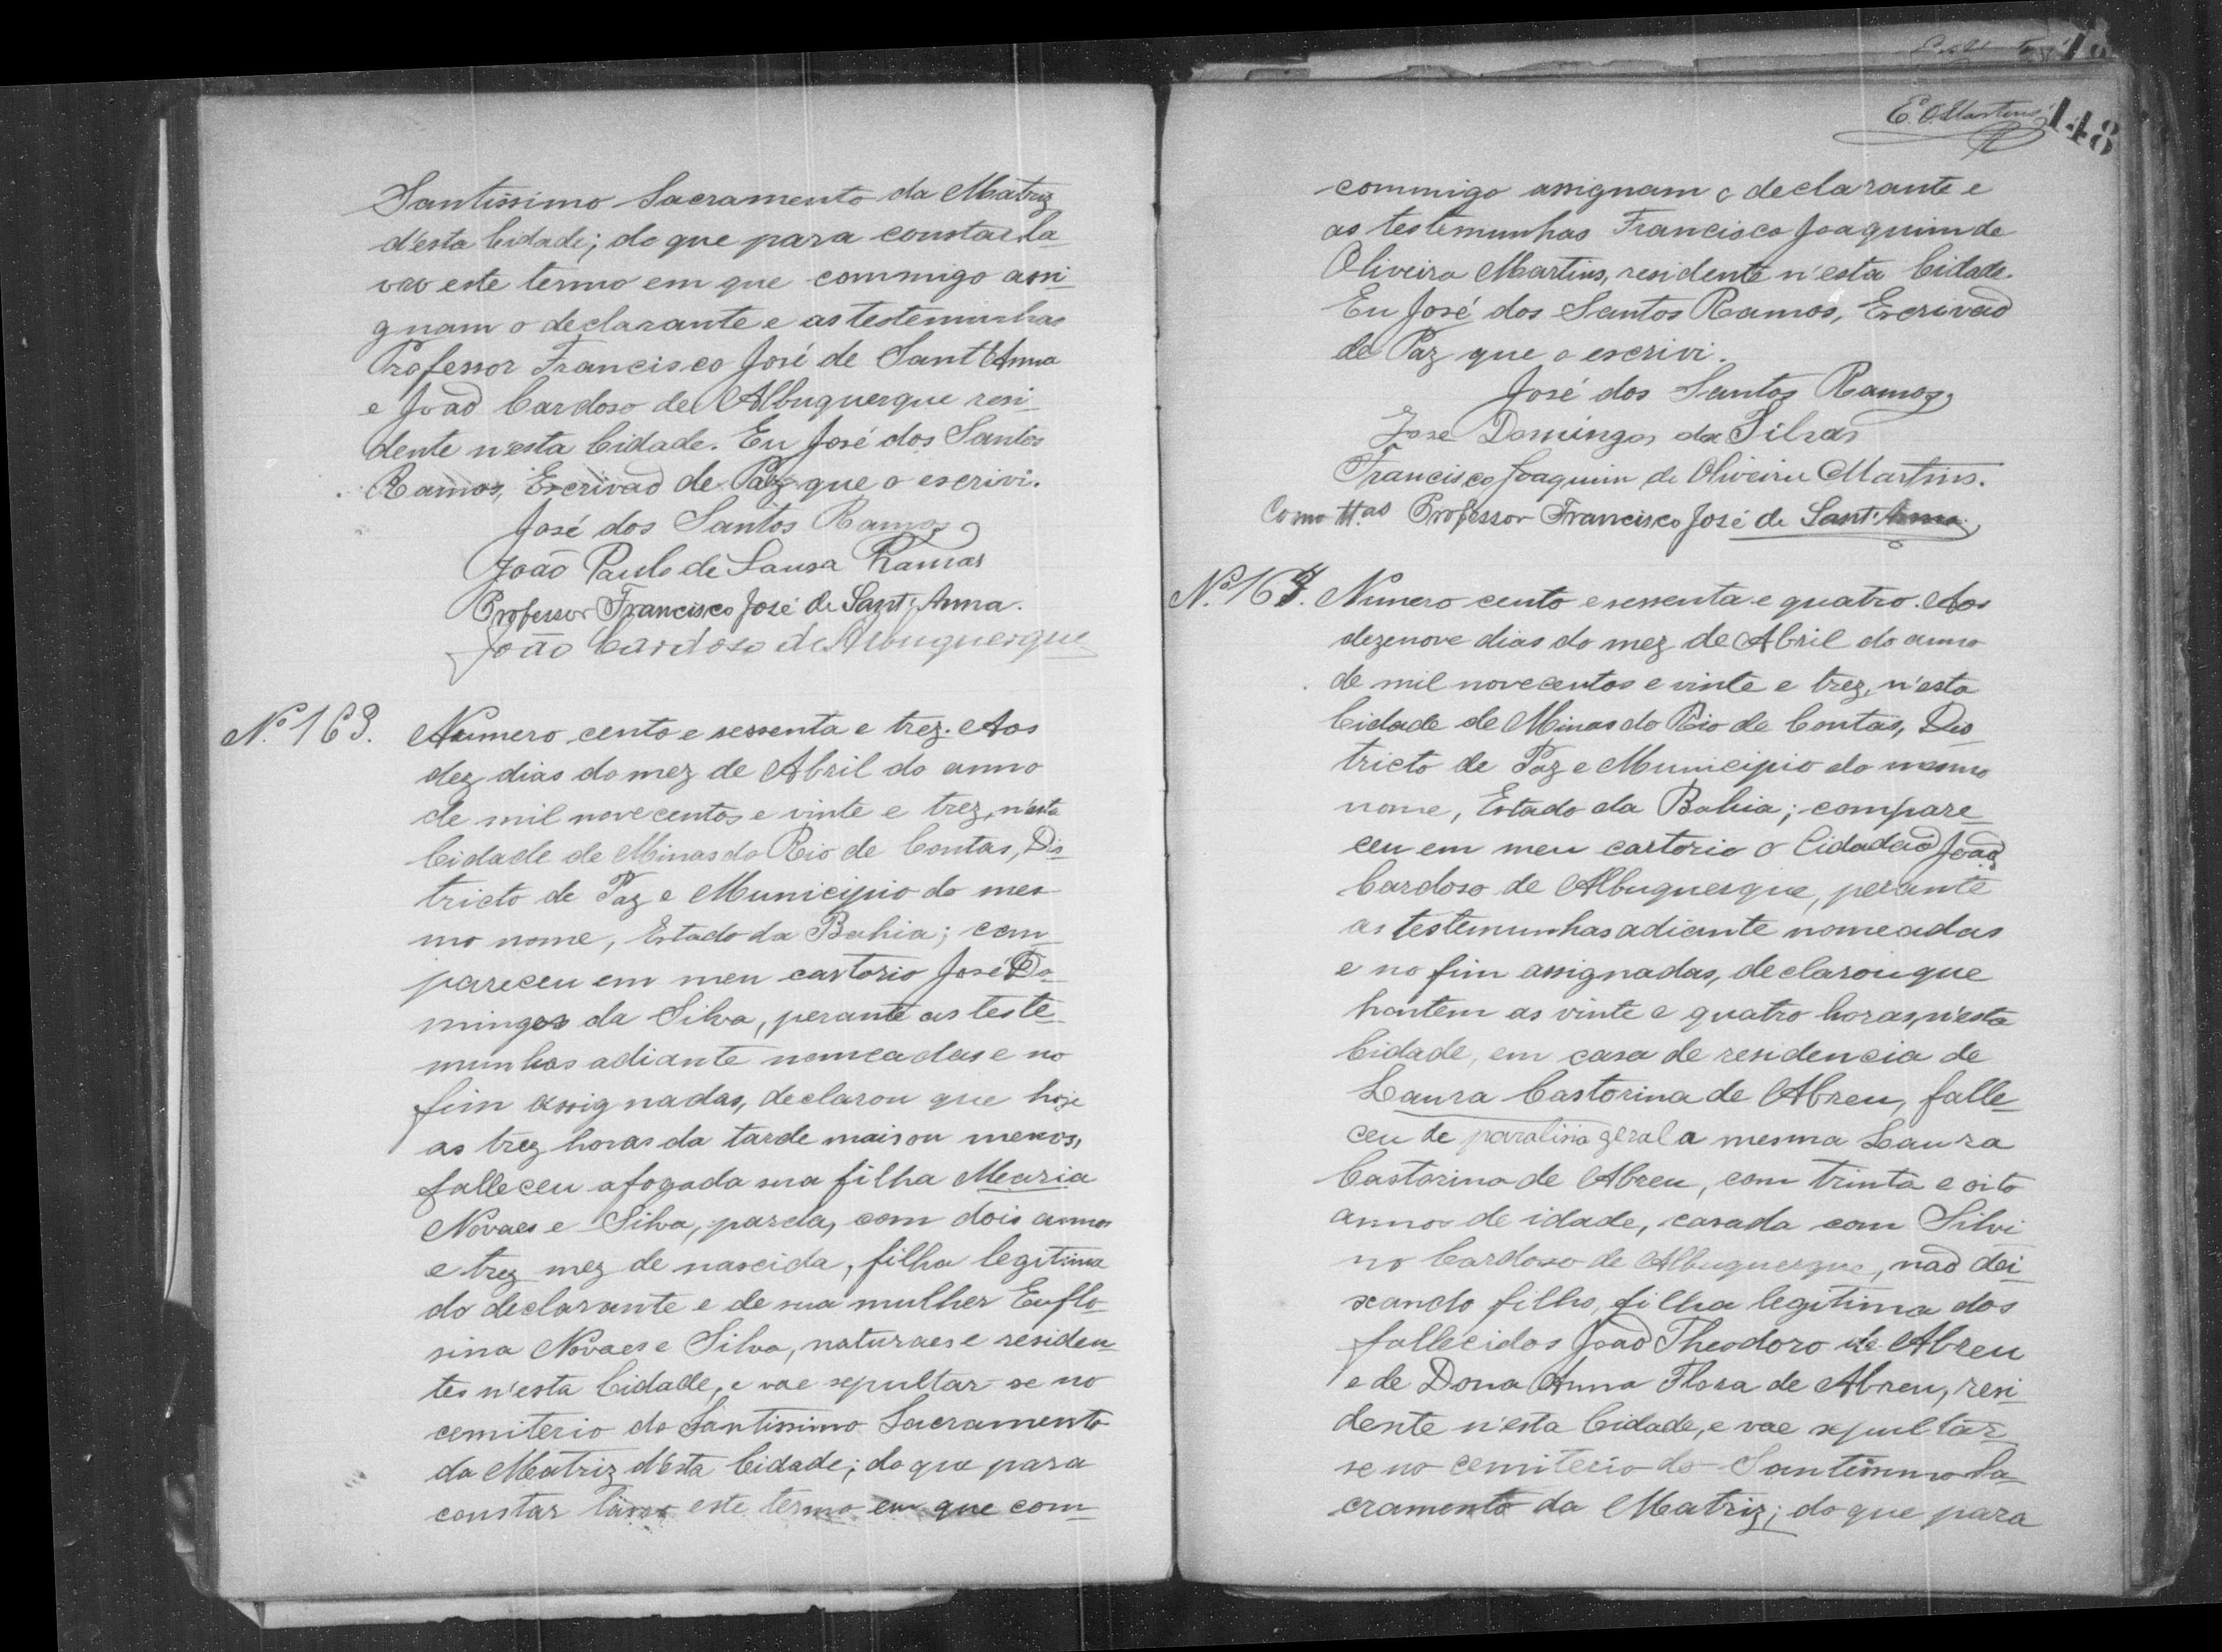 Santissimo Sacramento da Matriz
d'esta Cidade; do que para constar la-
vro este termo em que commigo assi-
gnam o declarante e as testemunhas
Professor Francisco José de Sant'Anna
e João Cardoso de Albuquerque resi-
dente n'esta Cidade. Eu José dos Santos
Ramos, Escrivão de Paz que o escrivi.
José dos Santos Ramos
João Paulo de Sousa Ramos
Professor Francisco José de Sant'Anna.
João Cardoso de Albuquerque
Nº 163. Numero cento e sessenta e trez. Aos
dez dias do mez de Abril do anno
de mil novecentos e vinte e trez, n'esta
Cidade de Minas do Rio de Contas, Dis-
tricto de Paz e Municipio do mes-
mo nome, Estado da Bahia; com-
pareceu em meu cartorio José Do-
mingos da Silva, perante as teste-
munhas adiante nomeadas e no
fim assignadas, declarou que hoje
as trez horas da tarde mais ou menos,
falleceu afogada sua filha Mearia
Novaes e Silva, parda, com dois annos
e trez mez de nascida, filha legitima
do declarante e de sua mulher Euflo-
sina Novaes e Silva, naturaes e residen-
tes n'esta Cidade, e vae sepultar-se no
cemiterio do Santissimo Sacramento
da Matriz d'esta Cidade; do que para
constar lavro este termo em que com-
E. O. Martins
148
commigo assignam o declarante e
as testemunhas Francisco Joaquim de
Oliveira Martins, residente n'esta Cidade.
Eu José dos Santos Ramos, Escrivão
de Paz que o escrivi.
José dos Santos Ramos
Jose Domingos da Silva
Francisco Joaquim de Oliveira Martins.
Como ttas Professor Francisco José de Sant'Anna
Nº 164. Numero cento e sessenta e quatro. Aos
dezenove dias do mez de Abril do anno
de mil novecentos e vinte e trez, n'esta
Cidade de Minas do Rio de Contas, Dis-
tricto de Paz e Municipio do mesmo
nome, Estado da Bahia; compare-
ceu em meu cartorio o Cidadão João
Cardoso de Albuquerque, perante
as testemunhas adiante nomeadas
e no fim assignadas, declarou que
hontem as vinte e quatro horas, n'esta
Cidade, em casa de residencia de
Laura Castorina de Abreu, falle-
ceu de paralisia geral a mesma Laura
Castorina de Abreu, com trinta e oito
annos de idade, casada com Silvi
no Cardoso de Albuquerque, não dei-
xando filho, filha legitima dos
fallecidos João Theodoro de Abreu
e de Dona Anna Flora de Abreu, resi-
dente n'esta Cidade, e vae sepultar-
se no cemiterio do Santissimo Sa-
cramento da Matriz; do que para